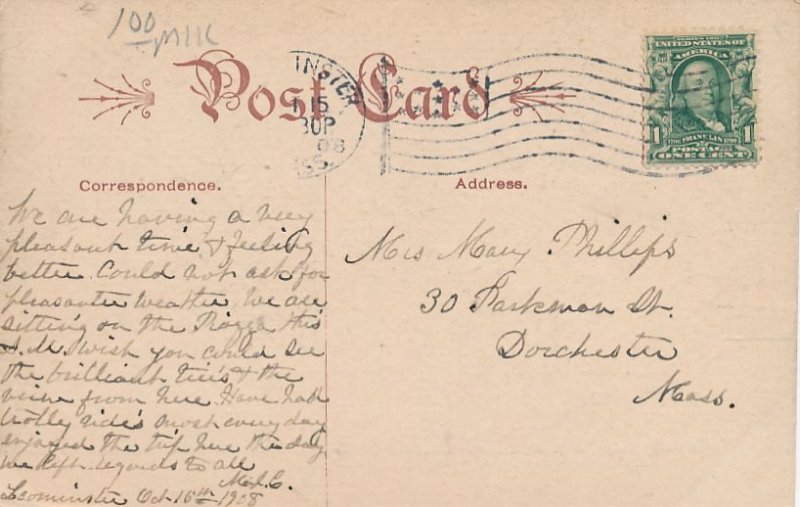 100
MIK
Post Card
INSTER
15
30P
08
SS.
UNITED STATES OF
AMERICA
1 FRANKLIN 1
POSTAGE
ONE CENT
Correspondence.
Address.
We are having a very
pleasant time & feeling
better. Could not ask for
pleasanter weather. We are
sitting on the Piazza this
A.M. Wish you could see
the brilliant tree's & the
view from here. Have had
trolly ride's most every day
enjoyed the trip here the day
we left regards to all
Leominster Oct. 15th 1908
Mrs Mary Phillips
30 Parkman St.
Dorchester
Mass.